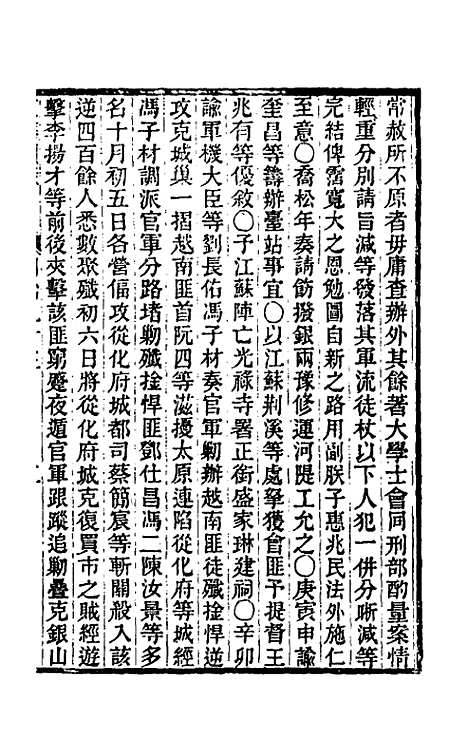 常赦所不原者毋庸查辦外其餘著大學士會同刑部酌量案情
輕重分別請旨減等發落其軍流徒杖以下人犯一併分晰減等
完結俾霑寬大之恩勉圖自新之路用副朕子惠兆民法外施仁
至意〇喬松年奏請飭撥銀兩豫修運河隄工允之〇庚寅申諭
奎昌等籌辦臺站事宜〇以江蘇荆溪等處拏獲會匪予提督王
兆有等優敘〇予江蘇陣亡光祿寺署正銜盛家琳建祠〇辛卯
諭軍機大臣等劉長佑馮子材奏官軍勦辦越南匪徒殲捦悍逆
攻克城巢一摺越南匪首阮四等滋擾太原連陷從化府等城經
馮子材調派官軍分路堵勦殲捦悍匪鄧仕昌馮二陳汝景等多
名十月初五日各營偪攻從化府城都司蔡簡宸等斬關殺入該
逆四百餘人悉數聚殲初六日將從化府城克復買市之賊經遊
擊李揚才等前後夾擊該匪窮蹙夜遁官軍跟蹤追勦疊克銀山